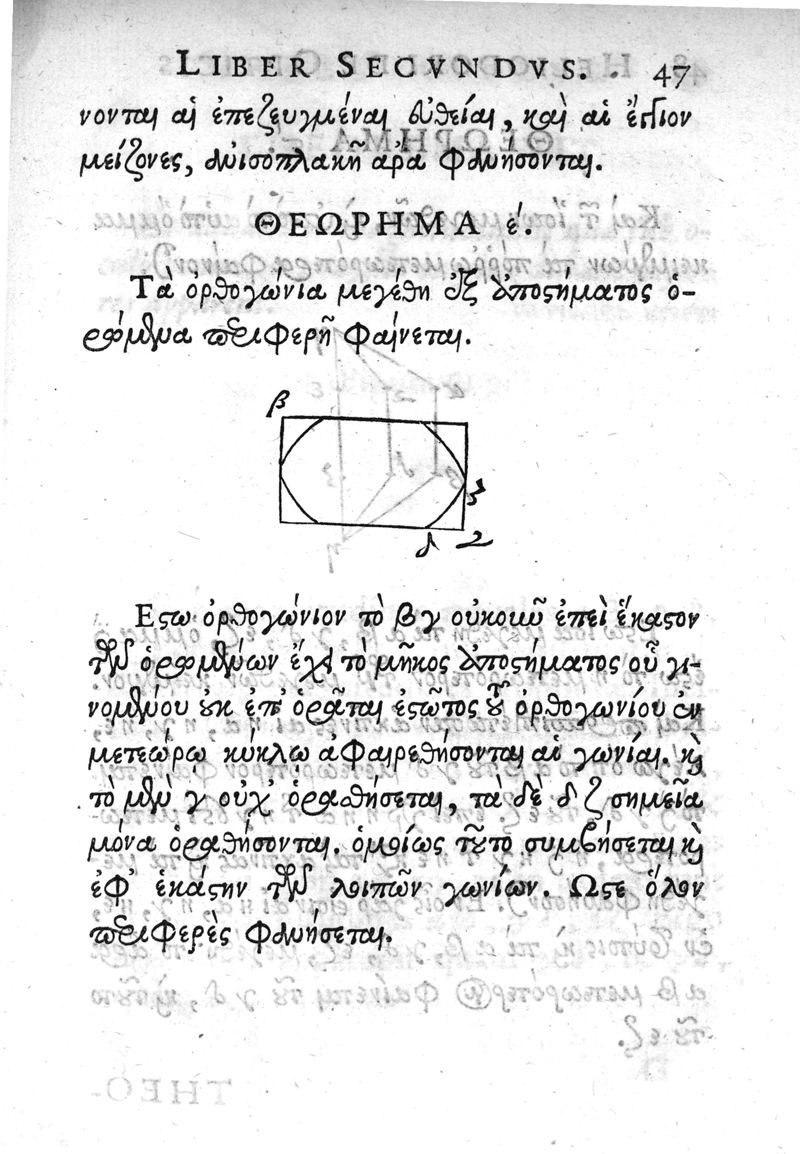 LIBER SECVNDVS. 47
νονται αἱ ἐπεζευγμέναι εὐθεῖαι, καὶ αἱ ἔγγιον
μείζονες, ἀνισόπλακῆ ἄρα φανήσονται.
ΘΕΩΡΗΜΑ έ.
Τὰ ὀρθογώνια μεγέθη ἐξ ἀποστήματος ὁ-
ρώμενα περιφερῆ φαίνεται.
β
ζ
δ γ
Εστω ὀρθογώνιον τὸ βγ οὐκοιῦ ἐπεὶ ἕκαστον
τῶν ὁρωμένων ἔχει τὸ μῆκος ἀποστήματος οὗ γι-
νομένου οὐκ ἐπ' ὁρᾶται ἐστῶτος τοῦ ὀρθογωνίου ἐν
μετεώρω κύκλω ἀφαιρεθήσονται αἱ γωνίαι. καὶ
τὸ μὲν γ οὐχ' ὁραθήσεται, τὰ δὲ δ ζ σημεῖα
μόνα ὁραθήσονται. ὁμοίως τοῦτο συμβήσεται καὶ
ἐφ' ἑκάστην τῶν λοιπῶν γωνίων. Ωστε ὅλον
περιφερὲς φανήσεται.
THEO-